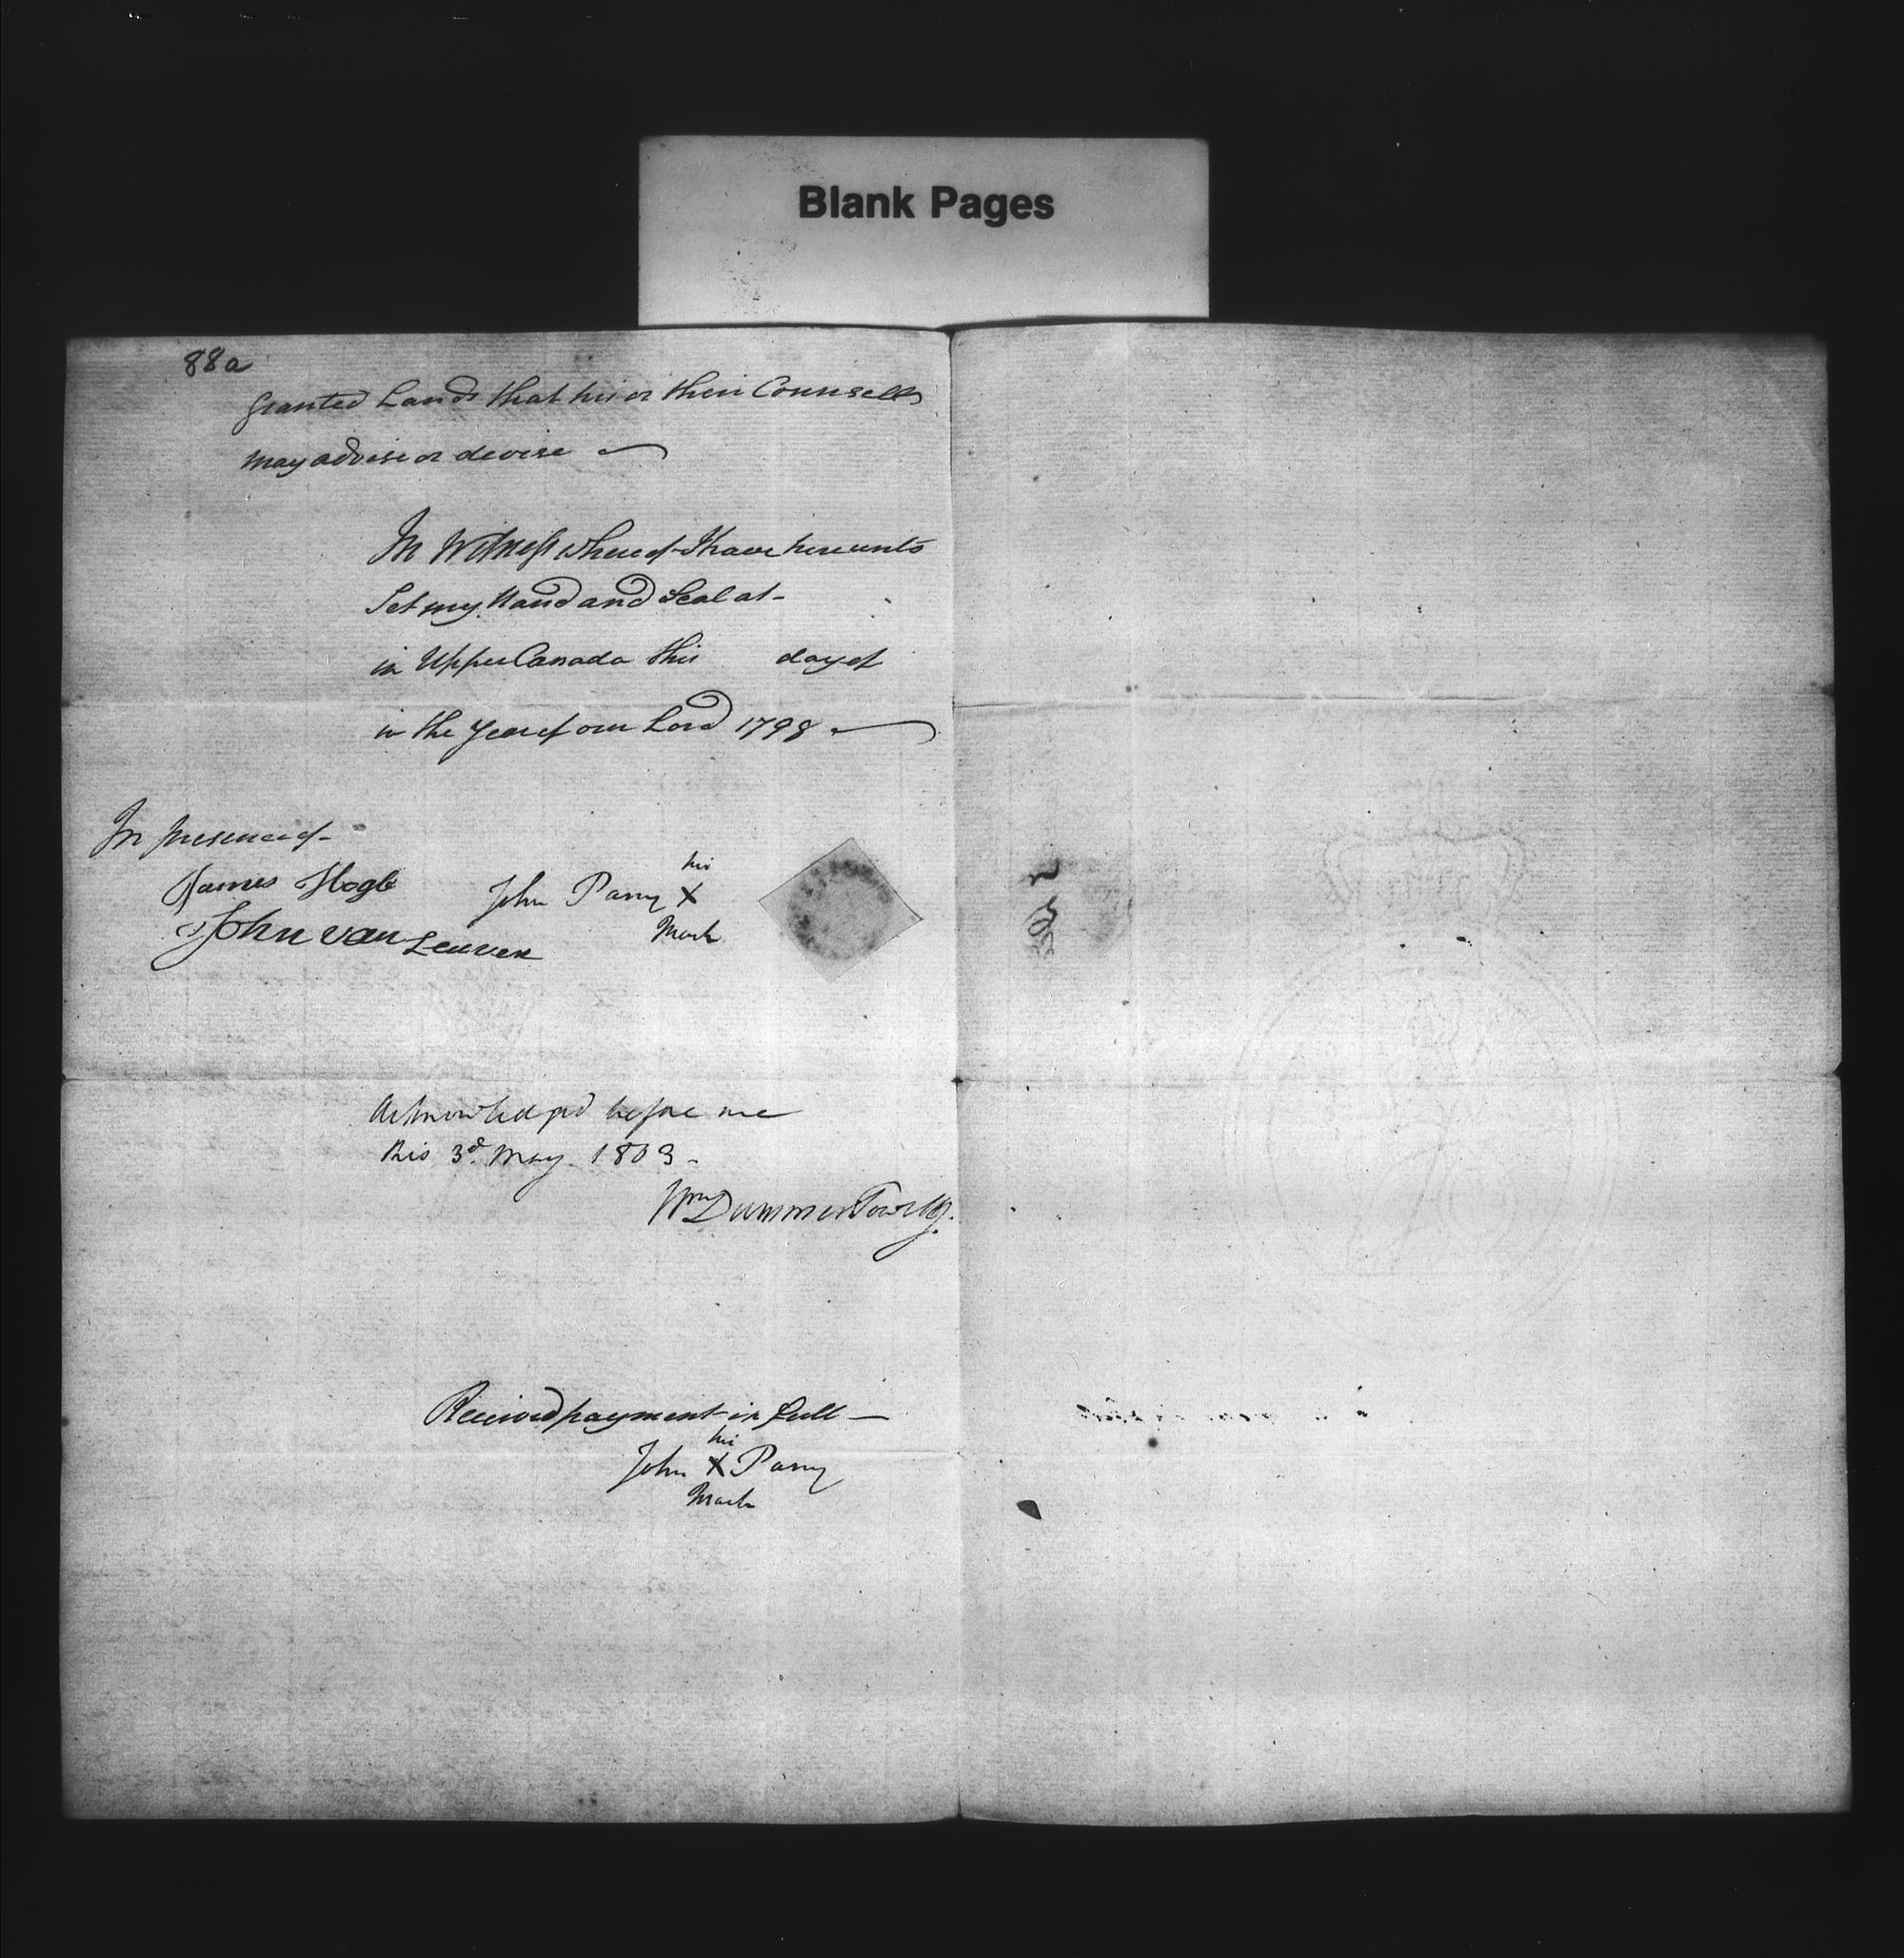 Blank Pages
88a
granted Lands that his or their Counsells
may advise or devise
In Witness whereof I have hereunto
Set my Hand and Seal at
in Upper Canada this day of
in the Year of our Lord 1798
In presence of
James Hogle
John van Leuven
his
John Parry X
Mark
Acknowledged before me
this 3d. May 1803
Wm Dummer Powell J.
Received payment in full
his
John X Parry
Mark